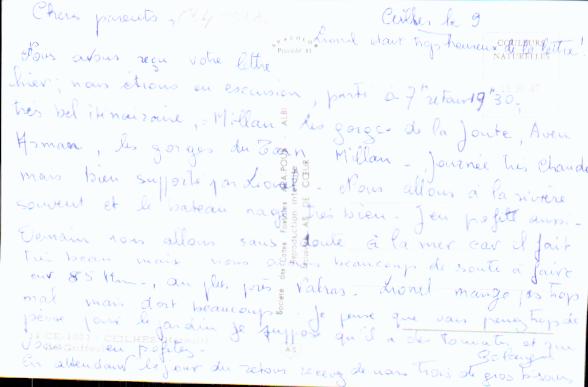 Chers parents,
Ceilhes le 9
Lionel était très heureux de la lettre!
COULEURS
NATURELLES
Nous avons reçu votre lettre
hier; nous étions en excursion, partis à 7h retour 19h30,
très bel itinéraire, Millau les gorges de la Jonte, Aven
Armand, les gorges du Tarn Millau - Journée très chaude
mais bien supportée par Lionel. Nous allons à la rivière
souvent et le bateau nage très bien. J'en profite aussi.
Demain nous allons sans doute à la mer car il fait
très beau mais nous avons beaucoup de route à faire
85 Km, au plus près Valras. Lionel mange pas trop
mal mais dort beaucoup. Je pense que vous
pour le jardin je suppose qu'il a des tomates et que
vous en profitez.
En attendant le jour du retour recevez de nous trois de gros baisers
Société des Cartes APA-POUX ALBI
Reproduction interdite
AS DE CŒUR
CEILHES